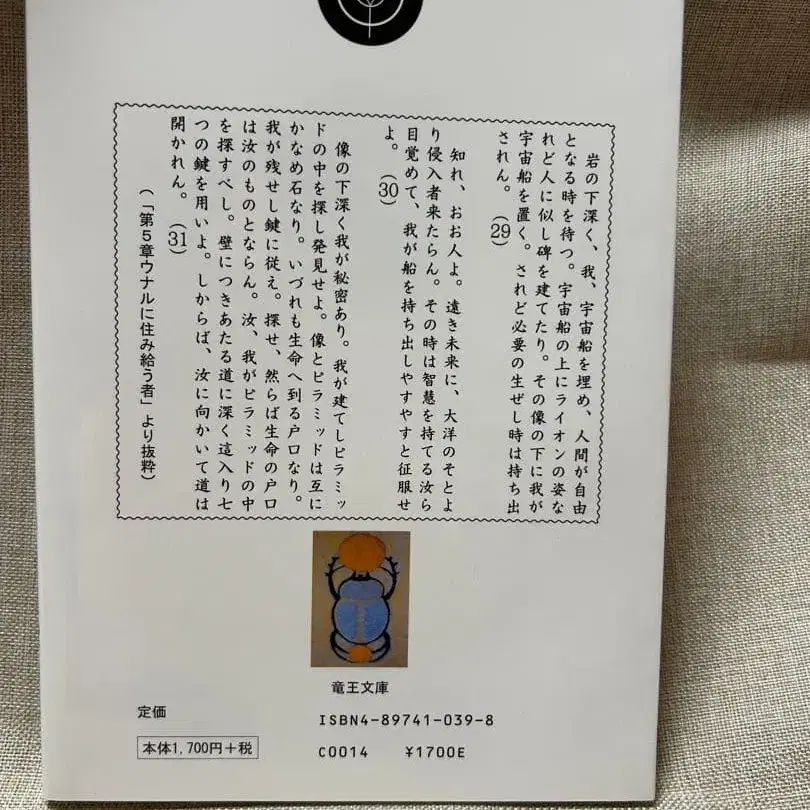 岩の下深く、我、宇宙船を埋め、人間が自由
となる時を待つ。宇宙船の上にライオンの姿な
れど人に似し碑を建てたり。その像の下に我が
宇宙船を置く。されど必要の生ぜし時は持ち出
されん。(29)
知れ、おお人よ。遠き未来に、大洋のそとよ
り侵入者来たらん。その時は智慧を持てる汝ら
目覚めて、我が船を持ち出しやすやすと征服せ
よ。(30)
像の下深く我が秘密あり。我が建てしピラミッ
ドの中を探し発見せよ。像とピラミッドは互に
かなめ石なり。いづれも生命へ到る戸口なり。
我が残せし鍵に従え。探せ、然らば生命の戸口
は汝のものとならん。汝、我がピラミッドの中
を探すべし。壁につきあたる道に深く這入り七
つの鍵を用いよ。しからば、汝に向かいて道は
開かれん。(31)
(「第5章ウナルに住み給う者」より抜粋)
竜王文庫
定価
本体1,700円+税
ISBN4-89741-039-8
C0014 ¥1700E